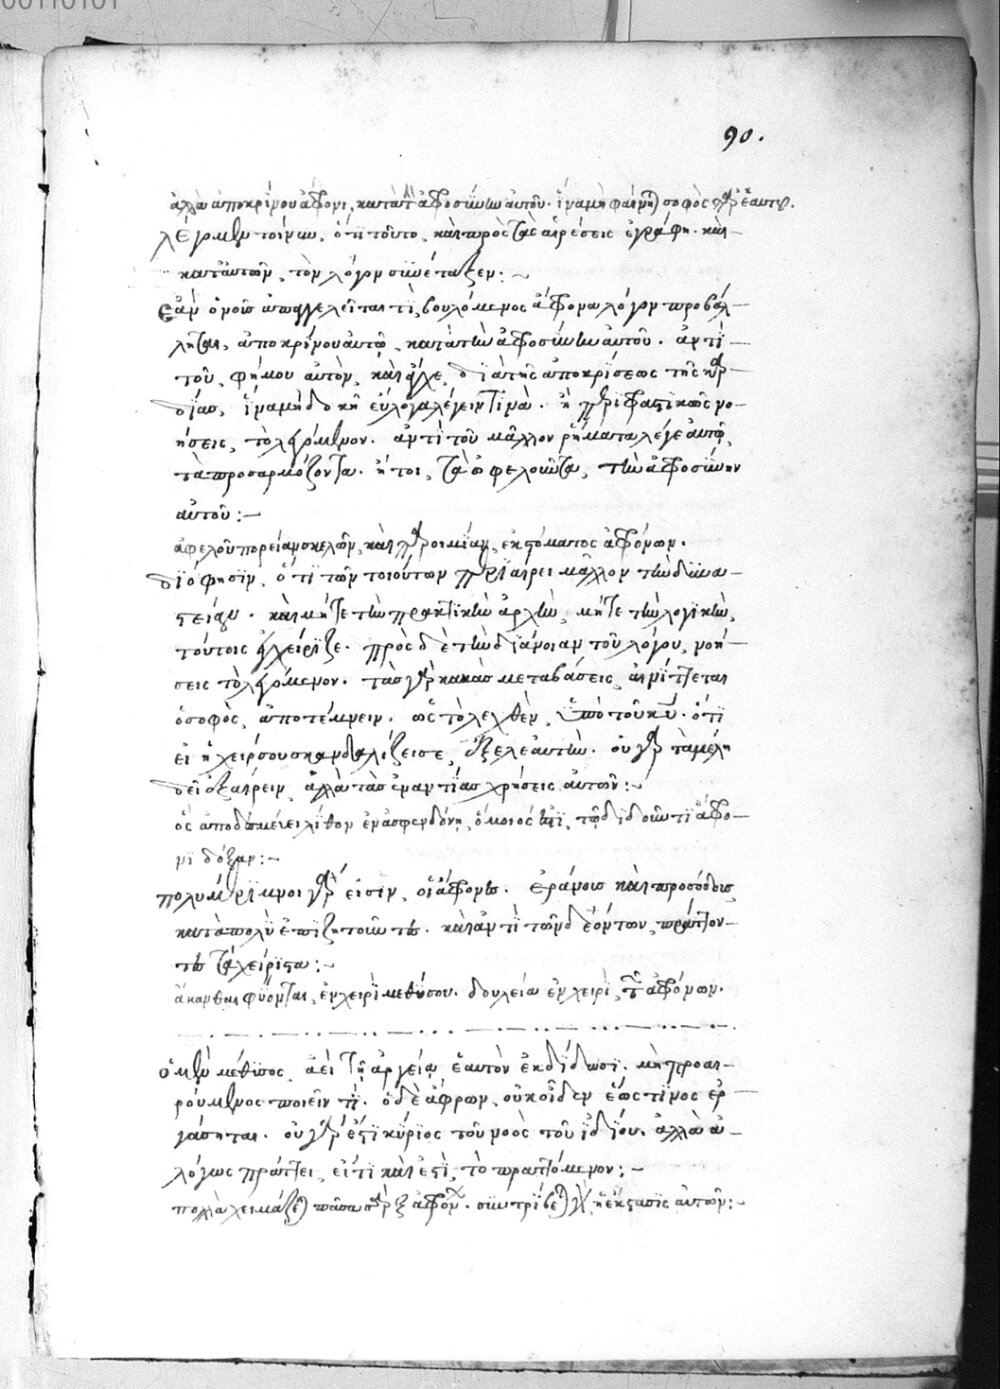 90.
ἀλλὰ ἀποκρίνου ἄφρονι κατὰ τὴν ἀφροσύνην αὐτοῦ· ἵνα μὴ φαίνηται σοφὸς παρ' ἑαυτῷ.
λέγομεν τοίνυν, ὅτι τοῦτο, καὶ πρὸς τὰς αἱρέσεις ἐγράφη· καὶ
κατ' αὐτῶν, τὸν λόγον συνέταξεν:
Ἐὰν ὁ νοῦς
βουλόμενος ἄφρονα λόγον προβάλ
ληται, ἀποκρίνου αὐτῷ, κατὰ τὴν ἀφροσύνην αὐτοῦ. ἀντὶ
τοῦ, φίμου αὐτὸν, καὶ
διὰ τῆς ἀποκρίσεως τῆς καρ
δίας, ἵνα μὴ δοκῆ εὔλογα λέγειν τινὰ. ἢ περιφραστικῶς νο
ήσεις, τὸ λεγόμενον. ἀντὶ τοῦ μᾶλλον ῥήματα λέγε αὐτῷ,
τὰ προσαρμόζοντα. ἤτοι, τὰ ὠφελοῦντα, τὴν ἀφροσύνην
αὐτοῦ:
ἀφελοῦ πορείαν σκελῶν, καὶ παροιμίαν, ἐκ στόματος ἀφρόνων.
διό φησιν, ὅτι τῶν τοιούτων περιαίρει μᾶλλον τὴν δυνα
στείαν. καὶ μήτε τὴν πρακτικὴν ἀρχὴν, μήτε τὴν λογικὴν,
τούτοις ἐγχείριζε. πρὸς δὲ τὴν διάνοιαν τοῦ λόγου, νοή
σεις τὸ λεγόμενον. τὰς γὰρ κακὰς μεταβάσεις, αἰνίττεται
ὁ σοφὸς, ἀποτέμνειν. ὡς τὸ λεχθὲν, ὑπὸ τοῦ κυ. ὅτι
εἰ ἡ χείρ σου σκανδαλίζει σε, ἔξελε αὐτὴν. οὐ γὰρ τὰ μέλη
δεῖ ἐξαίρειν, ἀλλὰ τὰς ἐναντίας χρήσεις αὐτῶν:
ὃς ἀποδεσμεύει λίθον ἐν σφενδόνη, ὅμοιός ἐστι, τῷ διδοῦντι ἄφρο
νι δόξαν:
πολυμέριμνοι γάρ εἰσιν, οἱ ἄφρονες. ἐράνοις καὶ προσόδοις
καταπολὺ ἐπιζητοῦντες. καὶ ἀντὶ τῶν δεόντων, πράττον
τες τὰ χείριστα:
ἄκανθαι φύονται, ἐν χειρὶ μεθύσου. δουλεία ἐν χειρὶ, τῶν ἀφρόνων.
Ὁ μὲν μέθυσος, ἀεὶ τῇ ἀργείᾳ ἑαυτὸν ἐκδίδωσι. μὴ προαι
ρούμενος ποιεῖν τὶ. ὁ δὲ ἄφρων, οὐκ οἶδεν ἕως τίνος ἐρ
γάσηται. οὐ γάρ ἐστι κύριος τοῦ νοὸς τοῦ ἰδίου. ἀλλὰ ἀ
λόγως πράττει, εἴ τι καὶ ἐστὶ, τὸ πραττόμενον:
πολλὰ χειμάζεται πᾶσα σὰρξ ἀφρόνων. συντρίβεται γὰρ, ἡ ἔκστασις αὐτῶν: